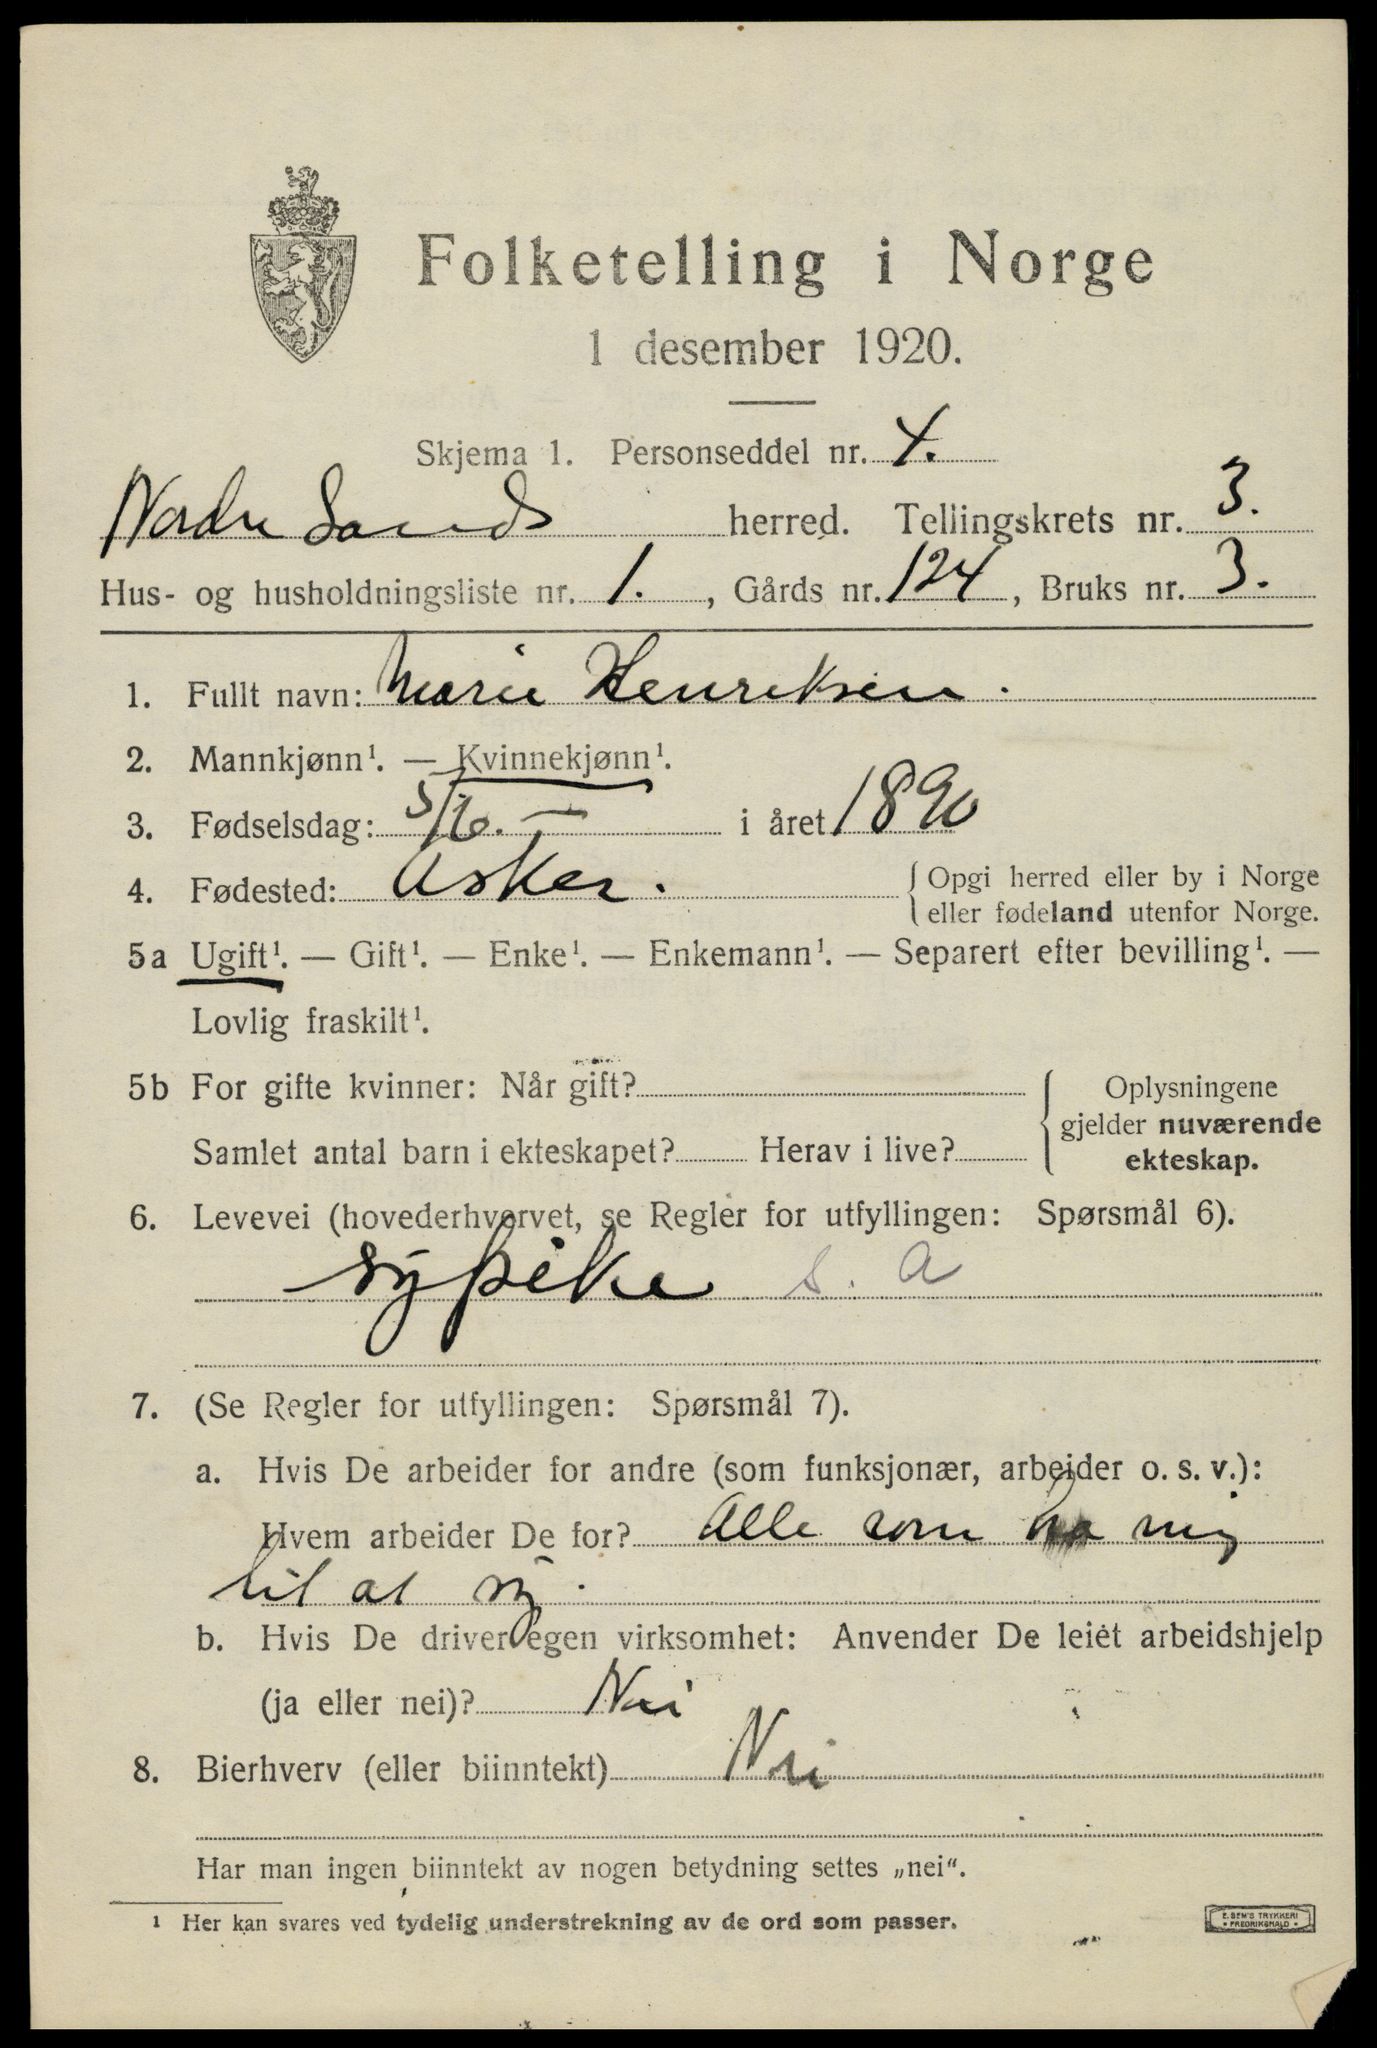 Folketelling i Norge
1 desember 1920.
Skjema 1. Personseddel nr. 4.
Nordre Sands herred. Tellingskrets nr. 3.
Hus- og husholdningsliste nr. 1., Gårds nr. 124, Bruks nr. 3.
1. Fullt navn: Marie Henriksen.
2. Mannkjønn¹. — Kvinnekjønn¹.
3. Fødselsdag: 5/6. — i året 1890
4. Fødested: Asker. { Opgi herred eller by i Norge
eller fødeland utenfor Norge.
5a Ugift¹. — Gift¹. — Enke¹. — Enkemann¹. — Separert efter bevilling¹. —
Lovlig fraskilt¹.
5b For gifte kvinner: Når gift? { Oplysningene
gjelder nuværende
Samlet antal barn i ekteskapet? Herav i live? ekteskap.
6. Levevei (hovederhvervet, se Regler for utfyllingen: Spørsmål 6).
sypike s. a
7. (Se Regler for utfyllingen: Spørsmål 7).
a. Hvis De arbeider for andre (som funksjonær, arbeider o. s. v.):
Hvem arbeider De for? Alle som ha mig
til at sy.
b. Hvis De driver egen virksomhet: Anvender De leiet arbeidshjelp
(ja eller nei)? Nei
8. Bierhverv (eller biinntekt) Nei
Har man ingen biinntekt av nogen betydning settes „nei“.
¹ Her kan svares ved tydelig understrekning av de ord som passer.
E. SEM'S TRYKKERI
FREDRIKSHALD